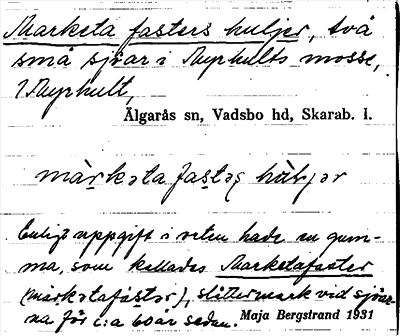 Marketa fasters huljer, två
små sjöar i Myrhults mosse,
Myrhult,
Älgarås sn, Vadsbo hd, Skarab. l.
màrkəta fastəs həljər
Enligt uppgift i orten hade en gum-
ma, som kallades Marketafaster
(màrkətafástər), slåttermark vid sjöar-
na för c:a 60 år sedan. Maja Bergstrand 1931